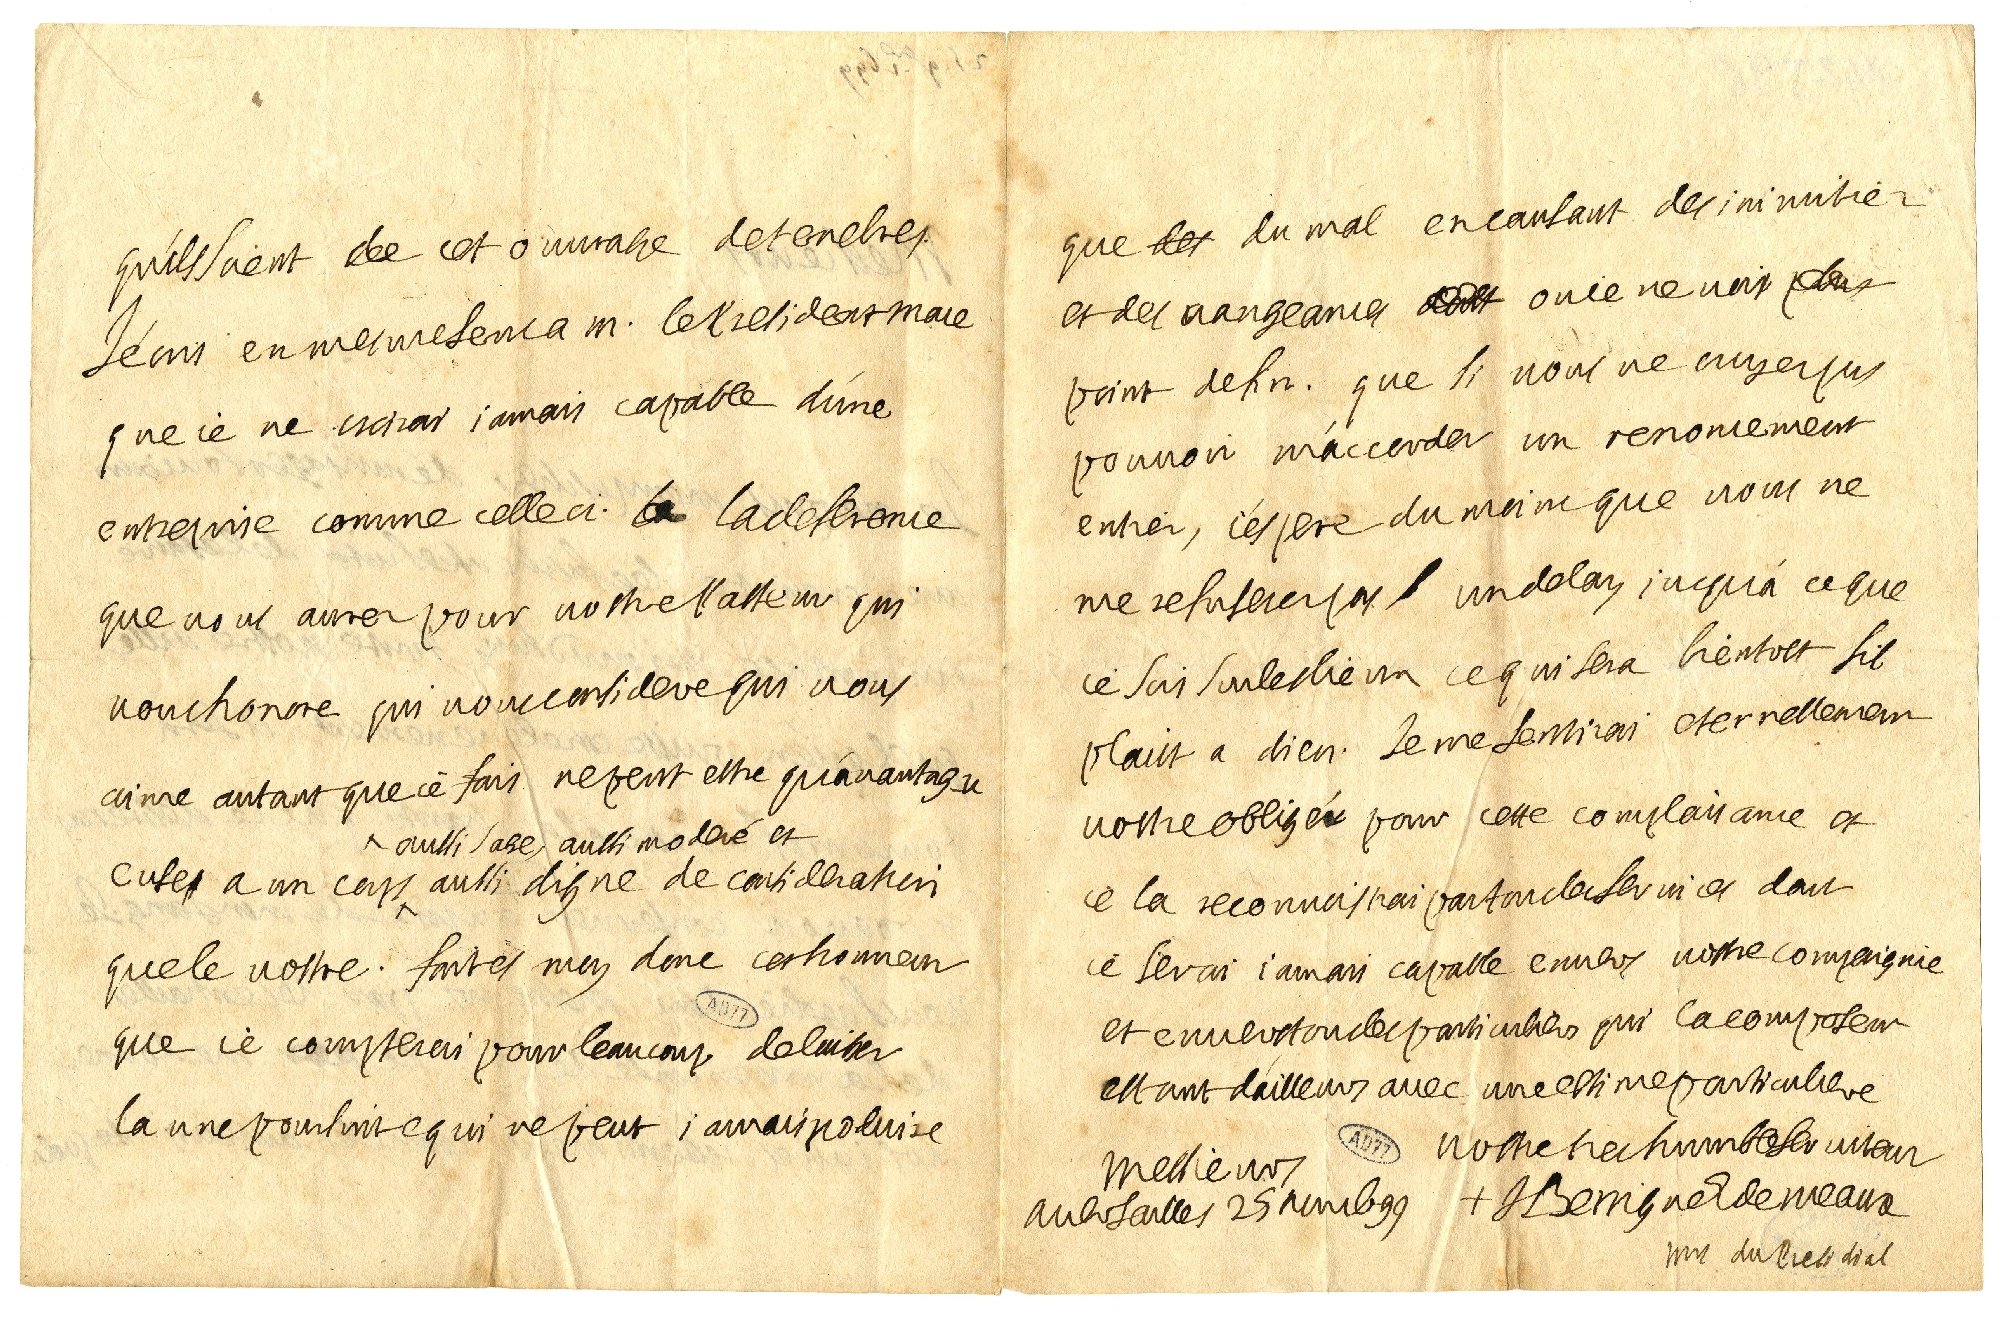 qu'ils soient de cet ouvrage de tenebres.
J'écris en mesme sens a m. le President Mace
que ie ne croirai iamais capable d'une
entreprise comme celle ci. la deference
que vous aurez pour vostre Pasteur qui
vous honore qui vous considere qui vous
aime autant que ie fais ne peut estre qu'avantageu
aussi sage, aussi moderé et
cuse a un corps aussi digne de consideration
que le vostre. faites moy donc cet honneur
que ie compterai pour beaucoup de laisser
la une poursuite qui ne peut iamais produire
que des du mal en causant des inimitiez
et des vangeances ou ie ne vois plus
point de fin. que si vous ne croyez pas
pouvoir m'accorder un renoncement
entier, i'espere du moins que vous ne
me refuserez pas un delay iusqu'a ce que
ie sois sur les lieux ce qui sera bientost s'il
plaist a dieu. Je me sentirai eternellement
vostre obligé pour cette complaisance et
ie la reconnoistrai par tous les services dont
ie serai iamais capable envers vostre compaignie
et envers tous les particuliers qui la composent
estant d'ailleurs avec une estime particuliere
Messieurs
vostre tres humble serviteur
a Versailles 25 novemb. 99
+ J Benigne E de meaux
mrs du Presidial
AD77
AD77